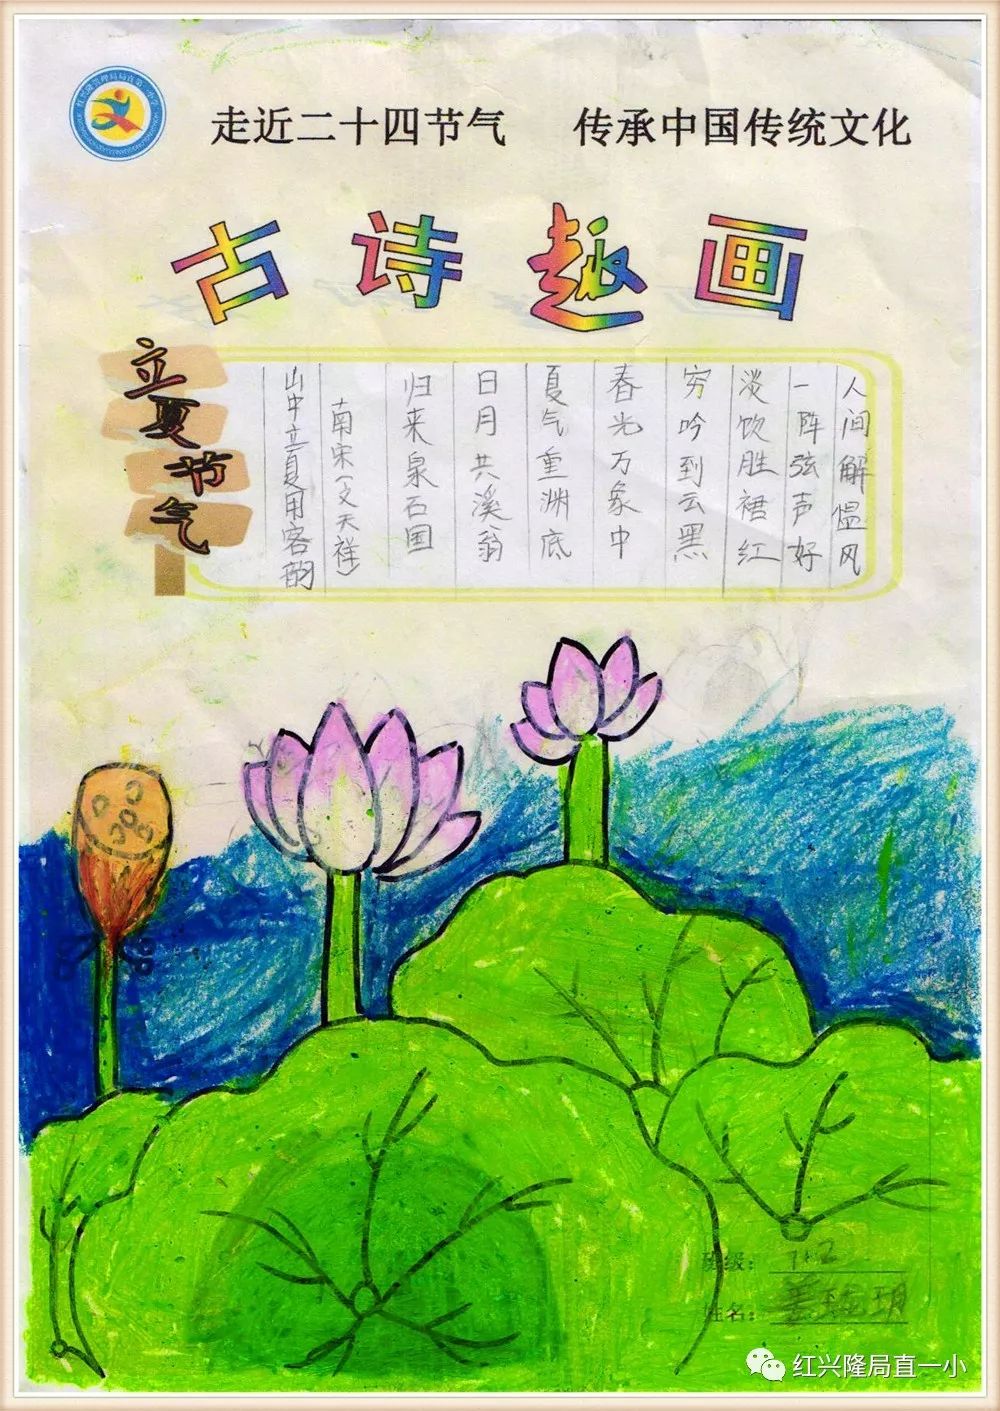 走近二十四节气 传承中国传统文化
古诗趣画
立夏节气
山中立夏用客韵
南宋(文天祥)
归来泉石国
日月共溪翁
夏气重渊底
春光万象中
穷吟到云黑
淡饮胜裙红
一阵弦声好
人间解愠风
班级: 1.2
姓名:
红兴隆局直一小